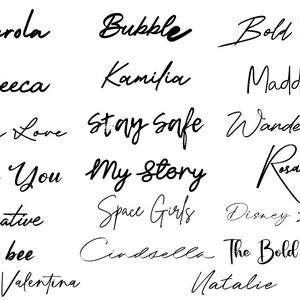 rola Bubble Bold
eeca Kamilia Madd
Love Stay Safe Wande
You My Story Rosa
ative Space Girls Disney
bee Cindsella The Bold
Valentina Natalie